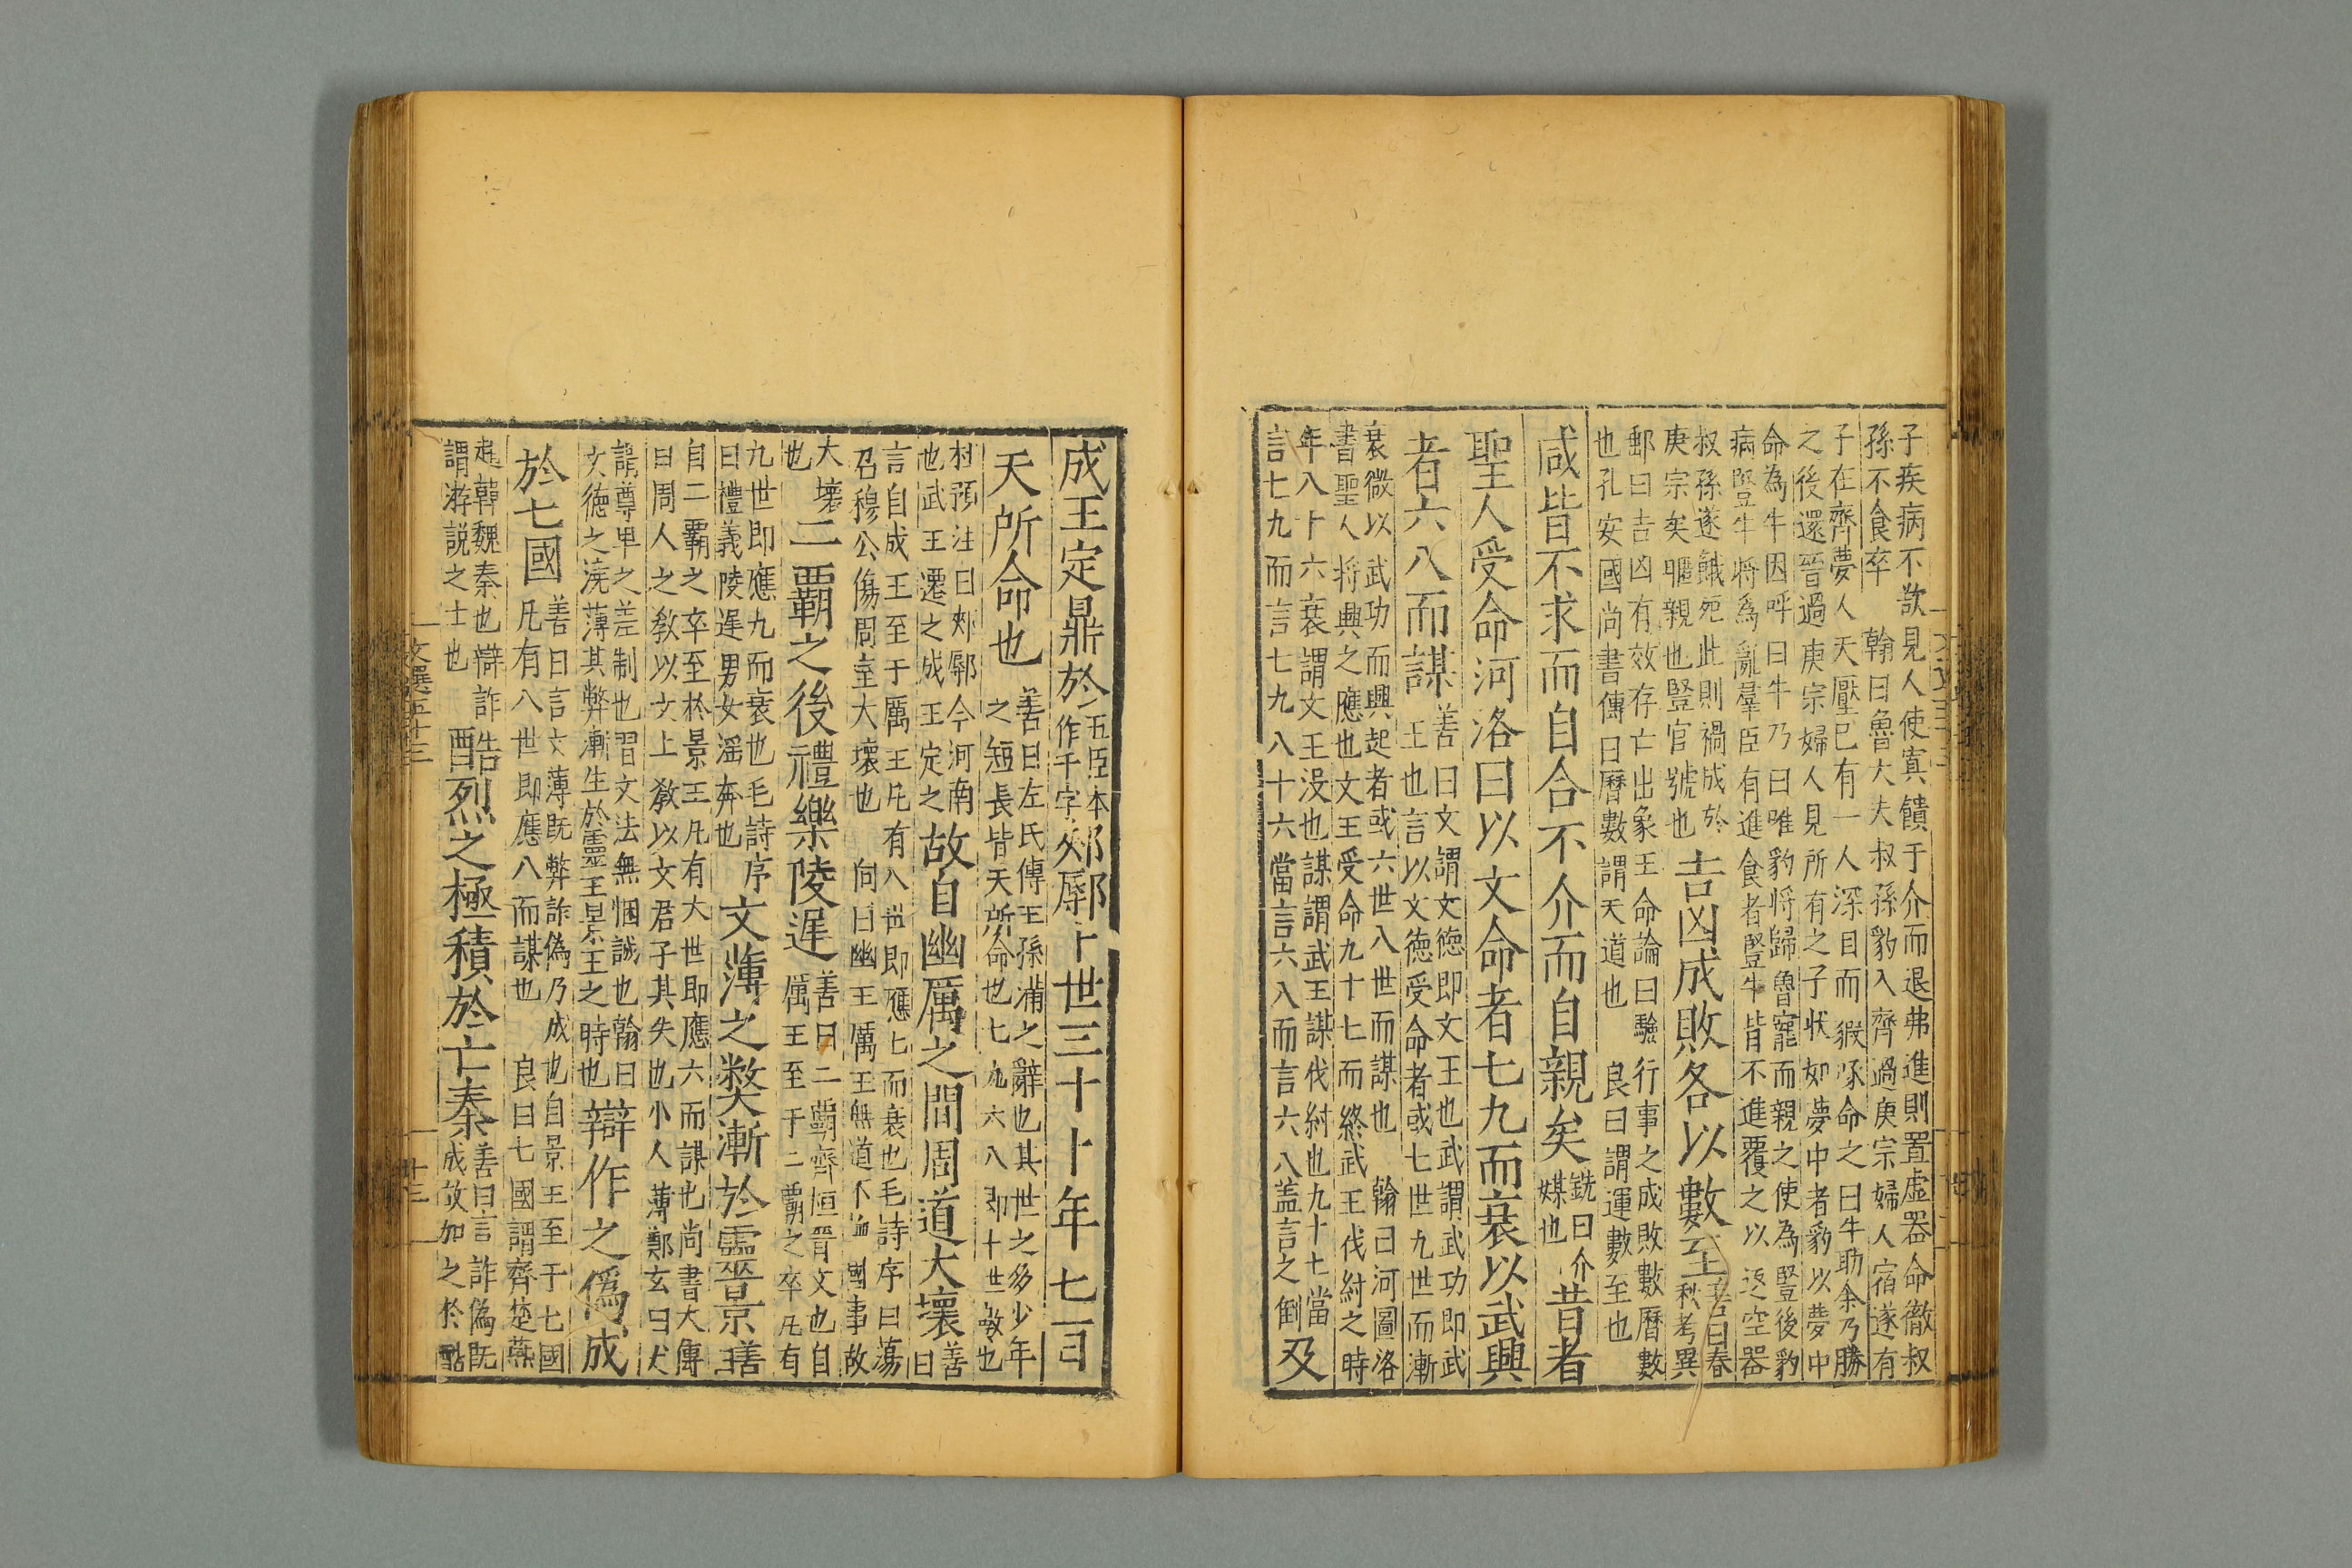 子疾病不欲見人使寘饋于介而退弗進則置虛器命徹叔
孫不食卒 翰曰魯大夫叔孫豹入齊過庚宗婦人宿遂有
子在齊夢人天壓已有一人深目而豭喙命之曰牛助余乃勝
之後還晉過庚宗婦人見所有之子狀如夢中者豹以夢中
命為牛因呼曰牛乃曰唯豹將歸魯寵而親之使為豎後豹
病豎牛將為亂羣臣有進食者豎牛皆不進覆之以返空器
叔孫遂餓死此則禍成於
庚宗矣驅親也豎官號也
吉凶成敗各以數至
善曰春
秋考異
郵曰吉凶有效存亡出象王命論曰驗行事之成敗數曆數
也孔安國尚書傳曰曆數謂天道也 良曰謂運數至也
咸皆不求而自合不介而自親矣
銑曰介
媒也
昔者
聖人受命河洛曰以文命者七九而衰以武興
者六八而謀
善曰文謂文德即文王也武謂武功即武
王也言以文德受命者或七世九世而漸
衰微以武功而興起者或六世八世而謀也 翰曰河圖洛
書聖人將興之應也文王受命九十七而終武王伐紂之時
年八十六衰謂文王没也謀謂武王謀伐紂也九十七當
言七九而言七九八十六當言六八而言六八蓋言之倒
及
成王定鼎於
五臣本
作于字
郟鄏卜世三十卜年七百
天所命也
善曰左氏傳王孫滿之辭也其世之多少年
之短長皆天所命也七九六八即十世數也
杜預注曰郟鄏今河南
也武王遷之成王定之
故自幽厲之間周道大壞
善
曰
言自成王至于厲王凡有八世即應七而衰也毛詩序曰蕩
召穆公傷周室大壞也 向曰幽王厲王無道不恤國事故
大壞
也
二霸之後禮樂陵遲
善曰二霸齊桓晉文也自
厲王至于二霸之卒凡有
九世即應九而衰也毛詩序
曰禮義陵遲男女淫奔也
文薄之弊漸於靈景
善
曰
自二霸之卒至於景王凡有大世即應六而謀也尚書大傳
曰周人之教以文上教以文君子其失也小人薄鄭玄曰文
謂尊卑之差制也習文法無悃誠也翰曰
文德之澆薄其弊漸生於靈王景王之時也
辯作之偽成
於七國
善曰言文薄既弊詐偽乃成也自景王至于七國
凡有八世即應八而謀也 良曰七國謂齊楚燕
趙韓魏秦也辯詐
謂游說之士也
酷烈之極積於亡秦
善曰言詐偽既
成故加之於酷
文選五十三
十三